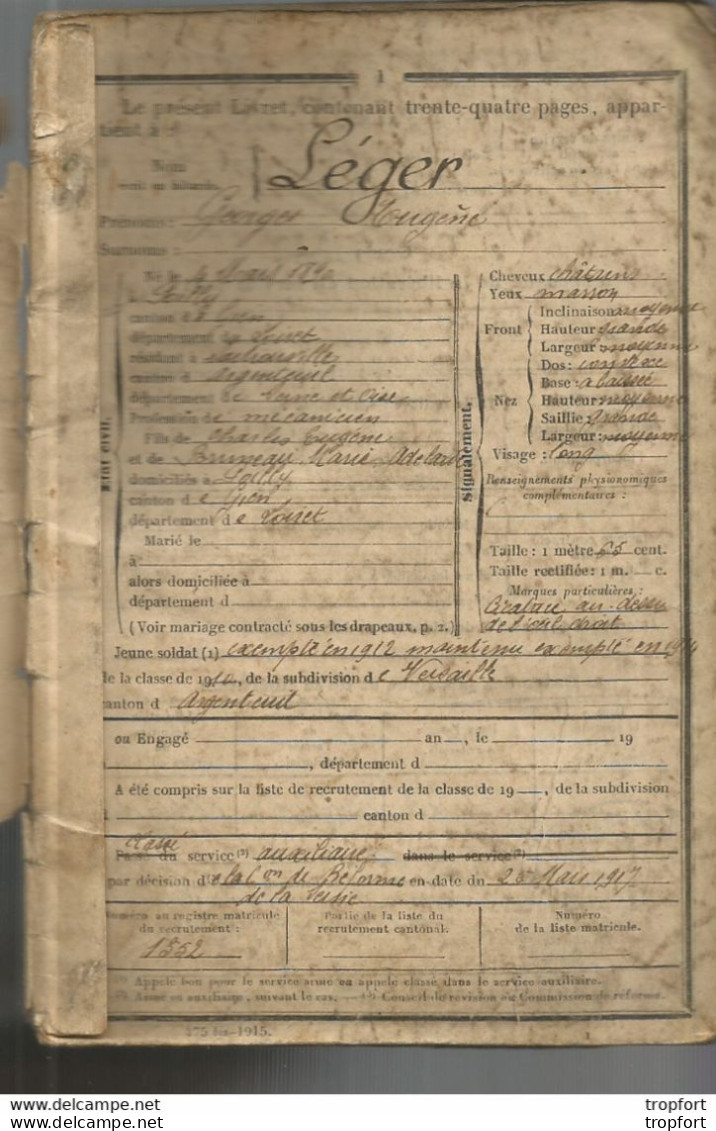 1
Le présent Livret, contenant trente-quatre pages, appar-
tient à :
Nom
écrit en bâtarde.
Léger
Prénoms : Georges Eugène
Surnoms :
Né le 4 Mars 1890
à Poilly
canton de Gien
département du Loiret
résidant à
canton d'Argenteuil
département de Seine et Oise
Profession de mécanicien
Fils de Charles Eugène
et de Bruneau Marie Adelaïde
domiciliés à Poilly
canton de Gien
département de Loiret
Marié le
à
alors domiciliée à
département d
(Voir mariage contracté sous les drapeaux, p. 2.)
État civil.
Signalement.
Cheveux châtains
Yeux marron
Front
Inclinaison: moyenne
Hauteur: grande
Largeur: moyenne
Nez
Dos: convexe
Base: abaissée
Hauteur: moyenne
Saillie: grande
Largeur: moyenne
Visage: long
Renseignements physionomiques
complémentaires :
Taille : 1 mètre 65 cent.
Taille rectifiée : 1 m. c.
Marques particulières :
au-dessus
de l'oeil droit
Jeune soldat (1) exempté en 1912 maintenu exempté en 1914
de la classe de 1910, de la subdivision de Versaille
canton d Argenteuil
ou Engagé an , le 19
, département d
A été compris sur la liste de recrutement de la classe de 19 , de la subdivision
canton d
Classé
Passé du service (2) auxiliaire dans le service (2)
par décision de la Con de Réforme en date du 26 Mars 1917
de la Seine
Numéro au registre matricule
du recrutement :
1552
Partie de la liste du
recrutement cantonal.
Numéro
de la liste matricule.
(1) Appelé bon pour le service armé ou appelé classé dans le service auxiliaire.
(2) Armé ou auxiliaire, suivant le cas. — (3) Conseil de révision ou Commission de réforme.
175 bis-1915.
1
tropfort
tropfort